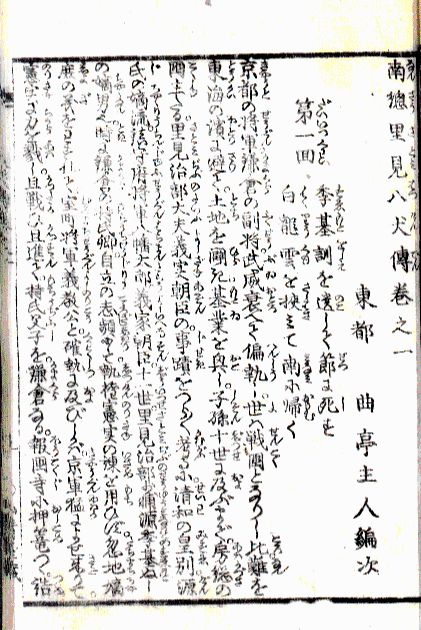 南總里見八犬傳卷之一
東都 曲亭主人編次
第一回
季基訓を遺して節に死す
白龍雲を挾みて南に歸く
京都の将軍鎌倉の副将武威衰へて偏執し世は戦國となりし比難を
東海の濱に避て土地を闢き基業を興し子孫十世に及ぶまで房總の
國主たる里見治部大夫義実朝臣の事蹟をつら〳〵考るに清和の皇別源
氏の嫡流鎮守府将軍八幡太郎義家朝臣十一世里見治部少輔源季基ぬし
の嫡男也時に鎌倉の持氏卿自立の志頻りにして執権憲実の諫を用ひず忽地嫡
庶の義をわすれて室町将軍義教公と確執に及びしかば京軍猛によせ来りて
憲実に力を戮し且戦ひ且進で持氏父子を鎌倉なる報國寺に押籠つゝ詰